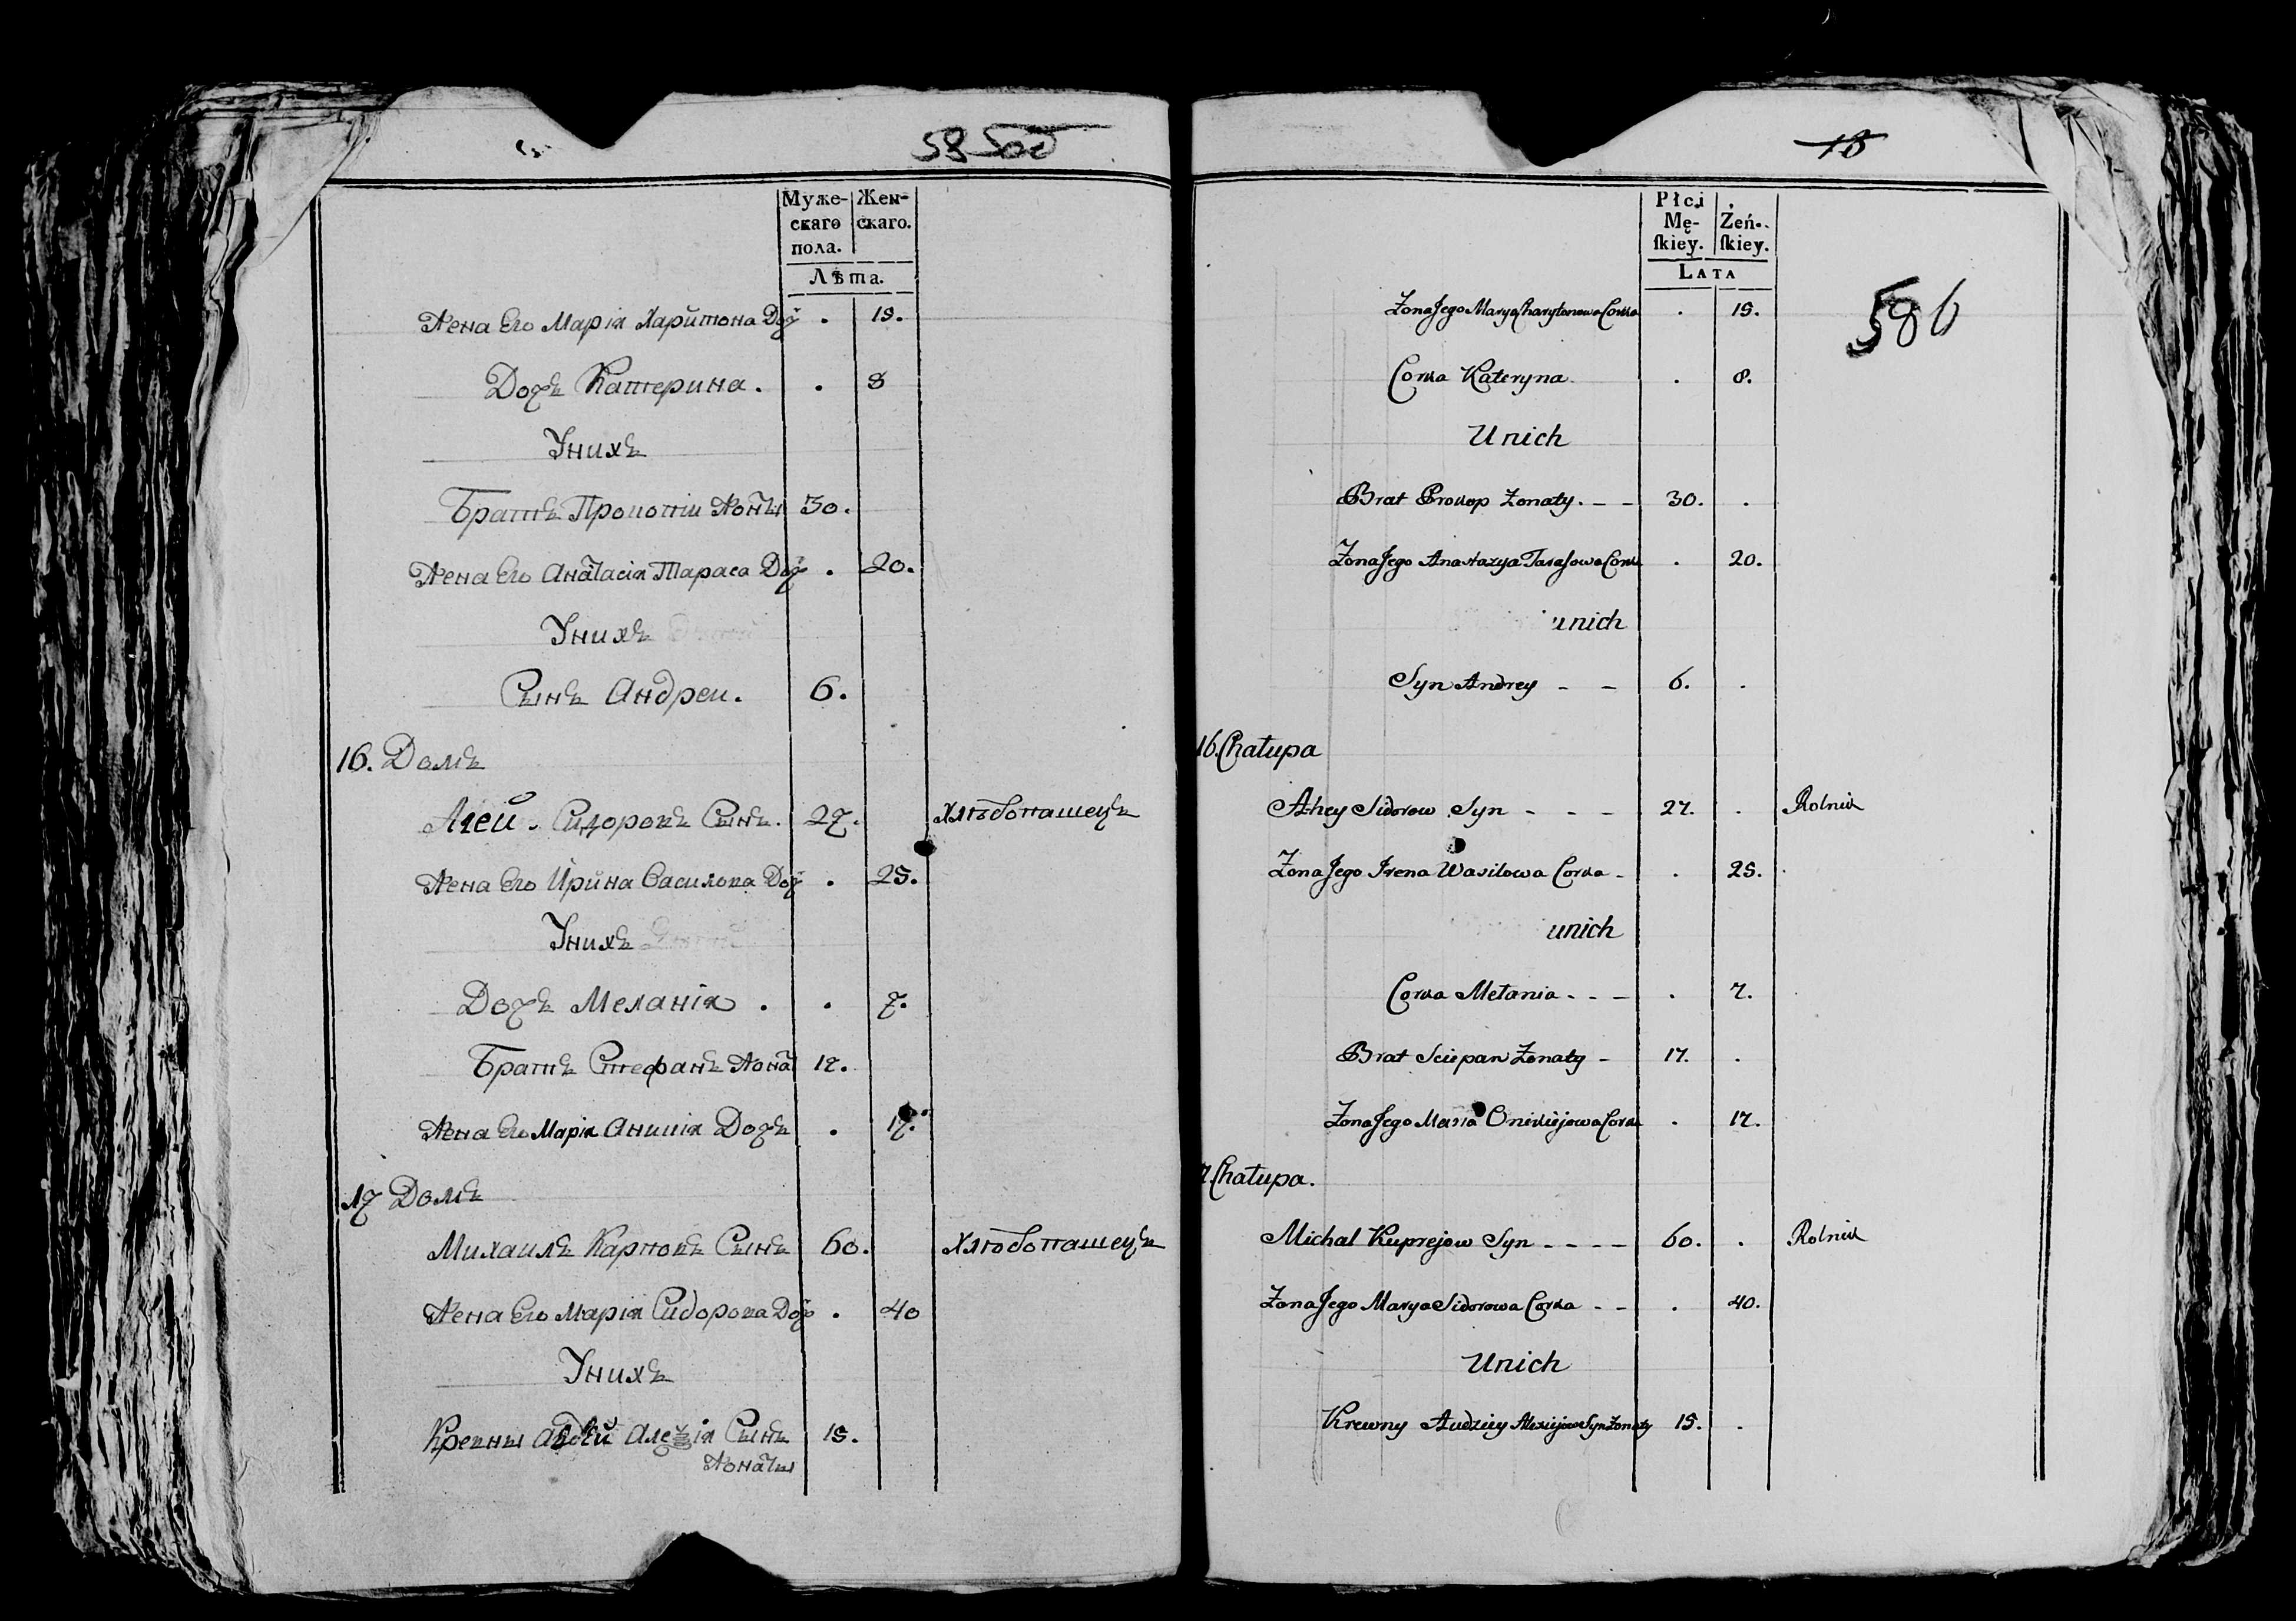 58 500
Муже- Жен-
скаго скаго.
пола.
Лѣта.
Жена Его Марія Харитона Доч . 19.
Дочь Катерина . . 8
Унихъ
Братъ Прокопіи Жонаты 30.
Жена Его Анастасія Тараса Доч . 20.
Унихъ
Сынъ Андреи. 6.
16. Домъ
Агеи . Сидоровъ Сынъ. 27. Хлѣбопашецъ
Жена Его Ирина Василова Доч . 25.
Унихъ
Дочь Меланія . . 7.
Братъ Стефанъ Жона 17.
Жена Его Марія Дочь . 17.
17 Домъ
Михаилъ Карповъ Сынъ 60. Хлѣбопашецъ
Жена Его Марія Сидорова Доч . 40
Унихъ
Кревны Сынъ 15.
Жонаты
18
Płci
Mę- Żeń-
ſkiey. ſkiey.
LATA
586
Zona Jego Marya Charytonowa Corka . 19.
Corka Kateryna . 8.
Unich
Brat Prokop Zonaty. – – 30. .
Zona Jego Anastazya Tarasowa Corka . 20.
unich
Syn Andrey – – 6. .
16. Chałupa
Ahey Sidorow Syn – – – 27. . Rolnik
Zona Jego Irena Wasilowa Corka – . 25.
unich
Corka Mełania . . – . 7.
Brat Sciepan Zonaty – 17. .
Zona Jego Maria Corka . 17.
7. Chałupa.
Michal Kuprejow Syn – – – – 60. . Rolnik
Zona Jego Marya Sidorowa Corka – – . 40.
Unich
Krewny Audziey Alexiejow Syn Zonaty 15. .